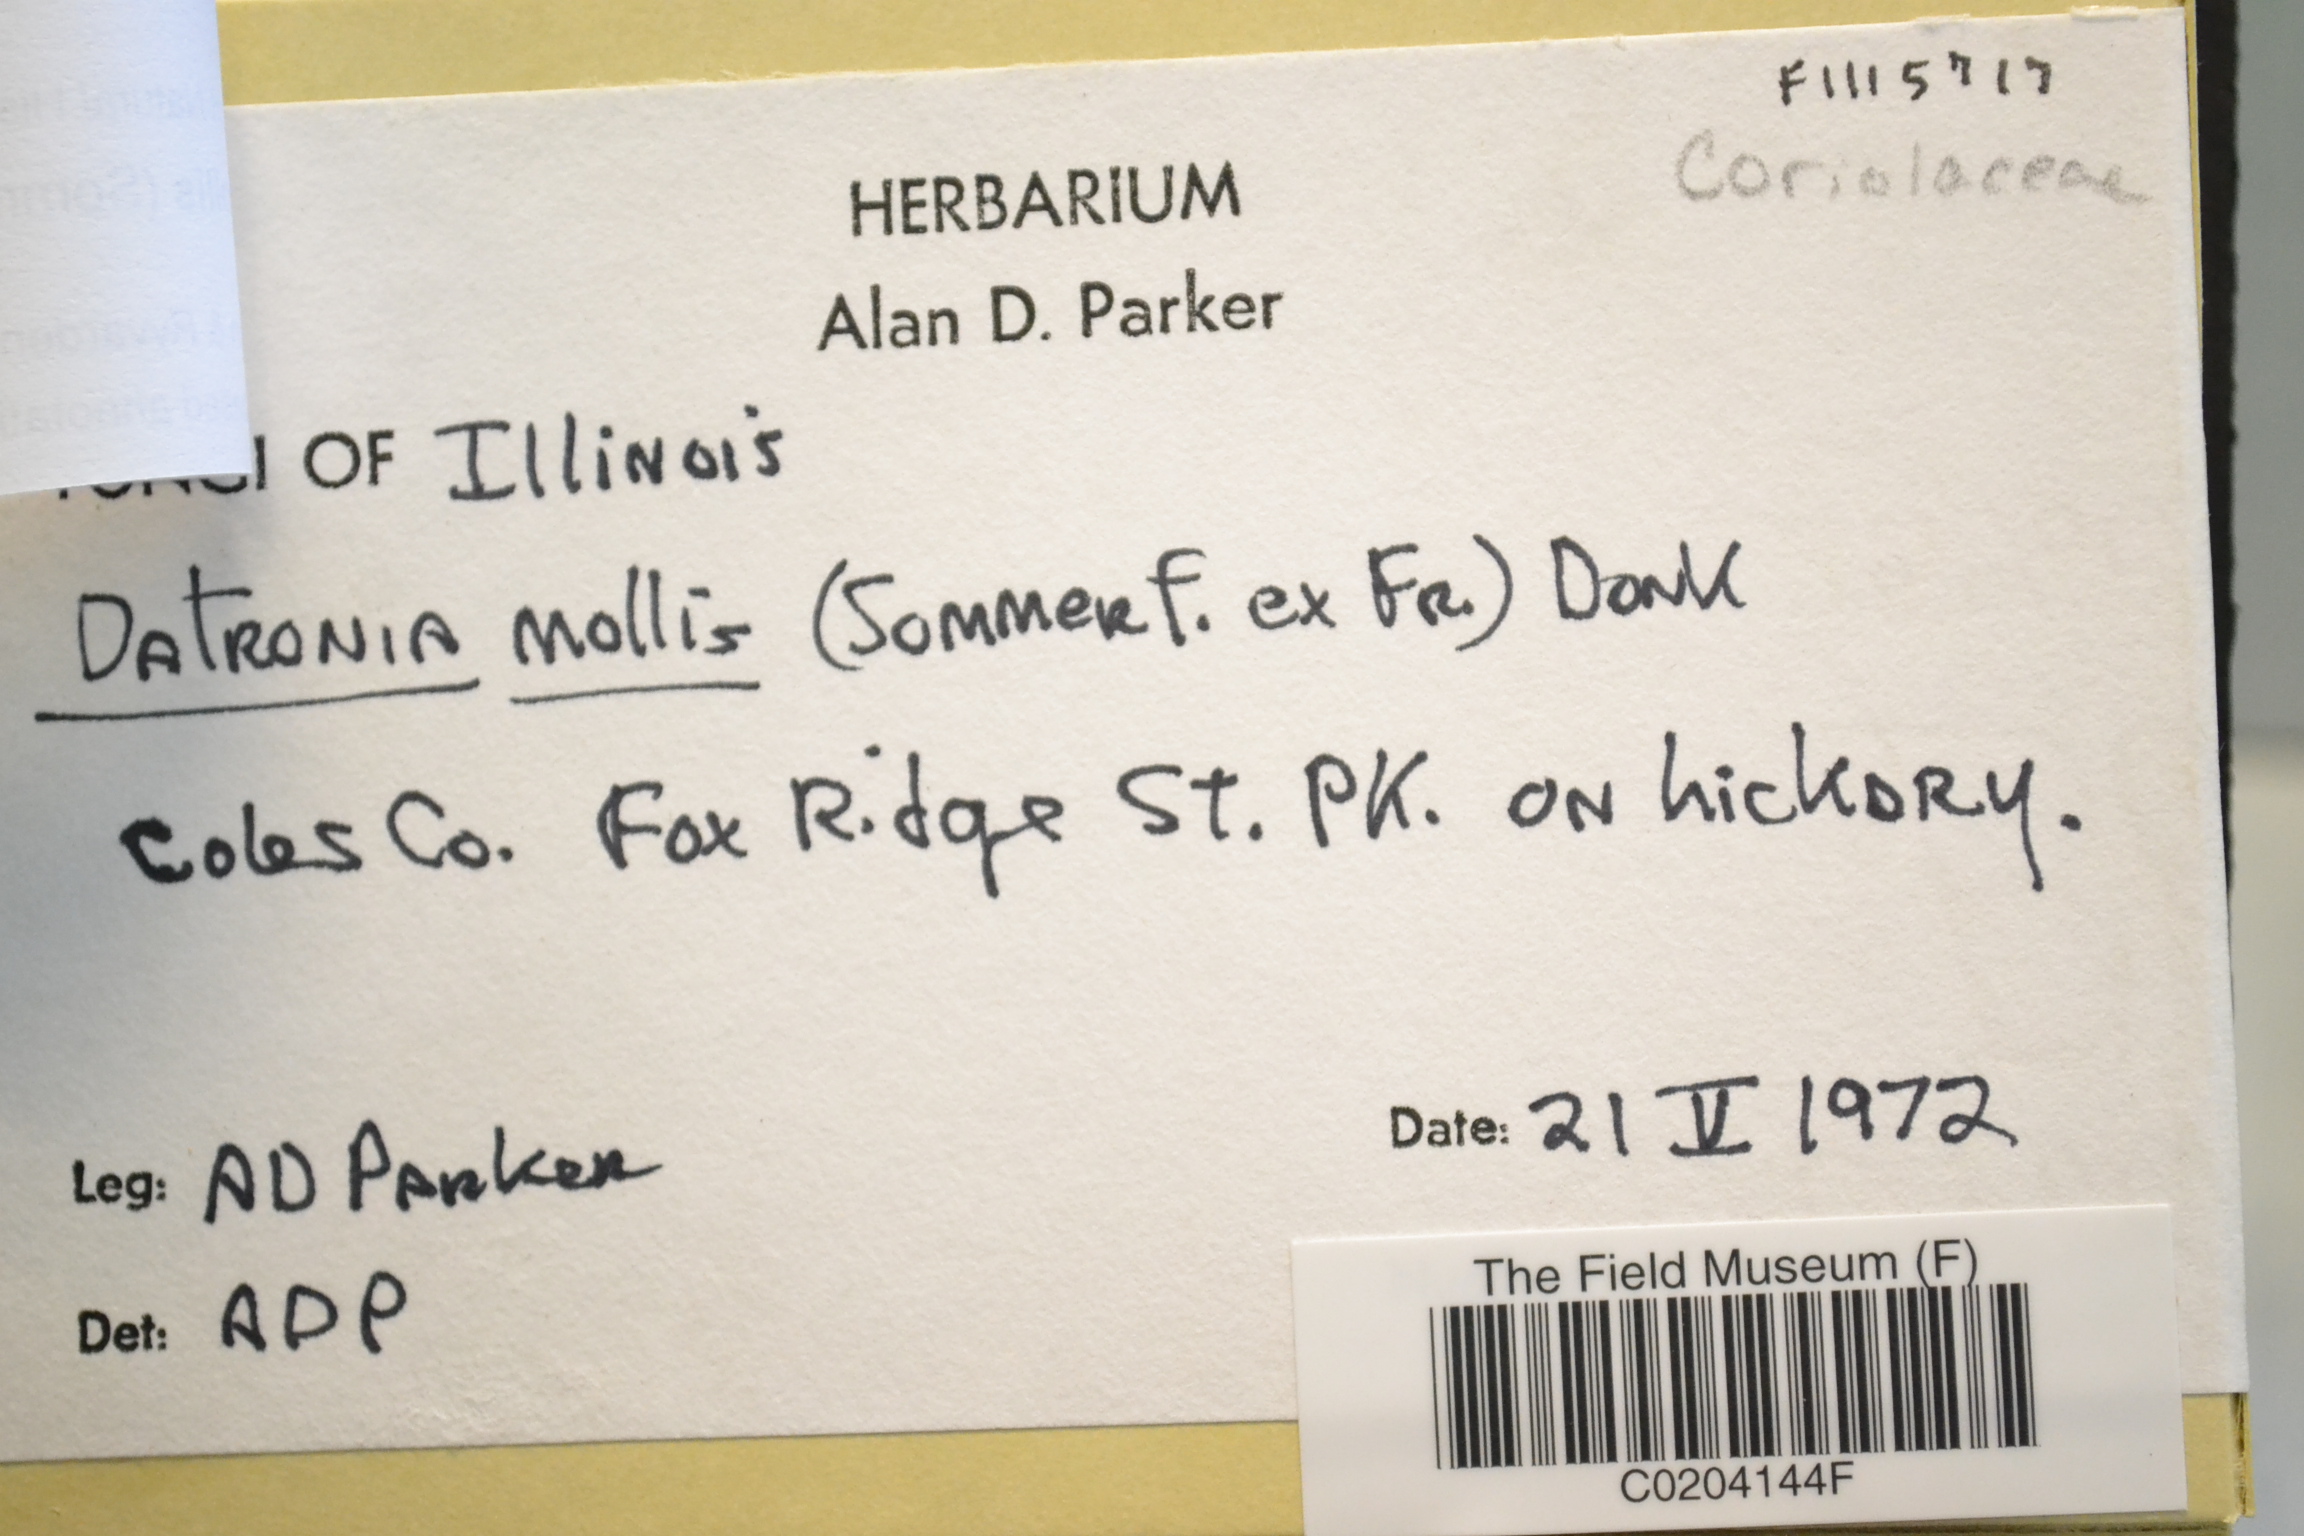 F1115717
Coriolaceae
HERBARIUM
Alan D. Parker
FUNGI OF Illinois
Datronia mollis (Sommerf. ex Fr.) Donk
Coles Co. Fox Ridge St. Pk. on hickory.
Date: 21 V 1972
Leg: AD Parker
Det: ADP
The Field Museum (F)
C0204144F